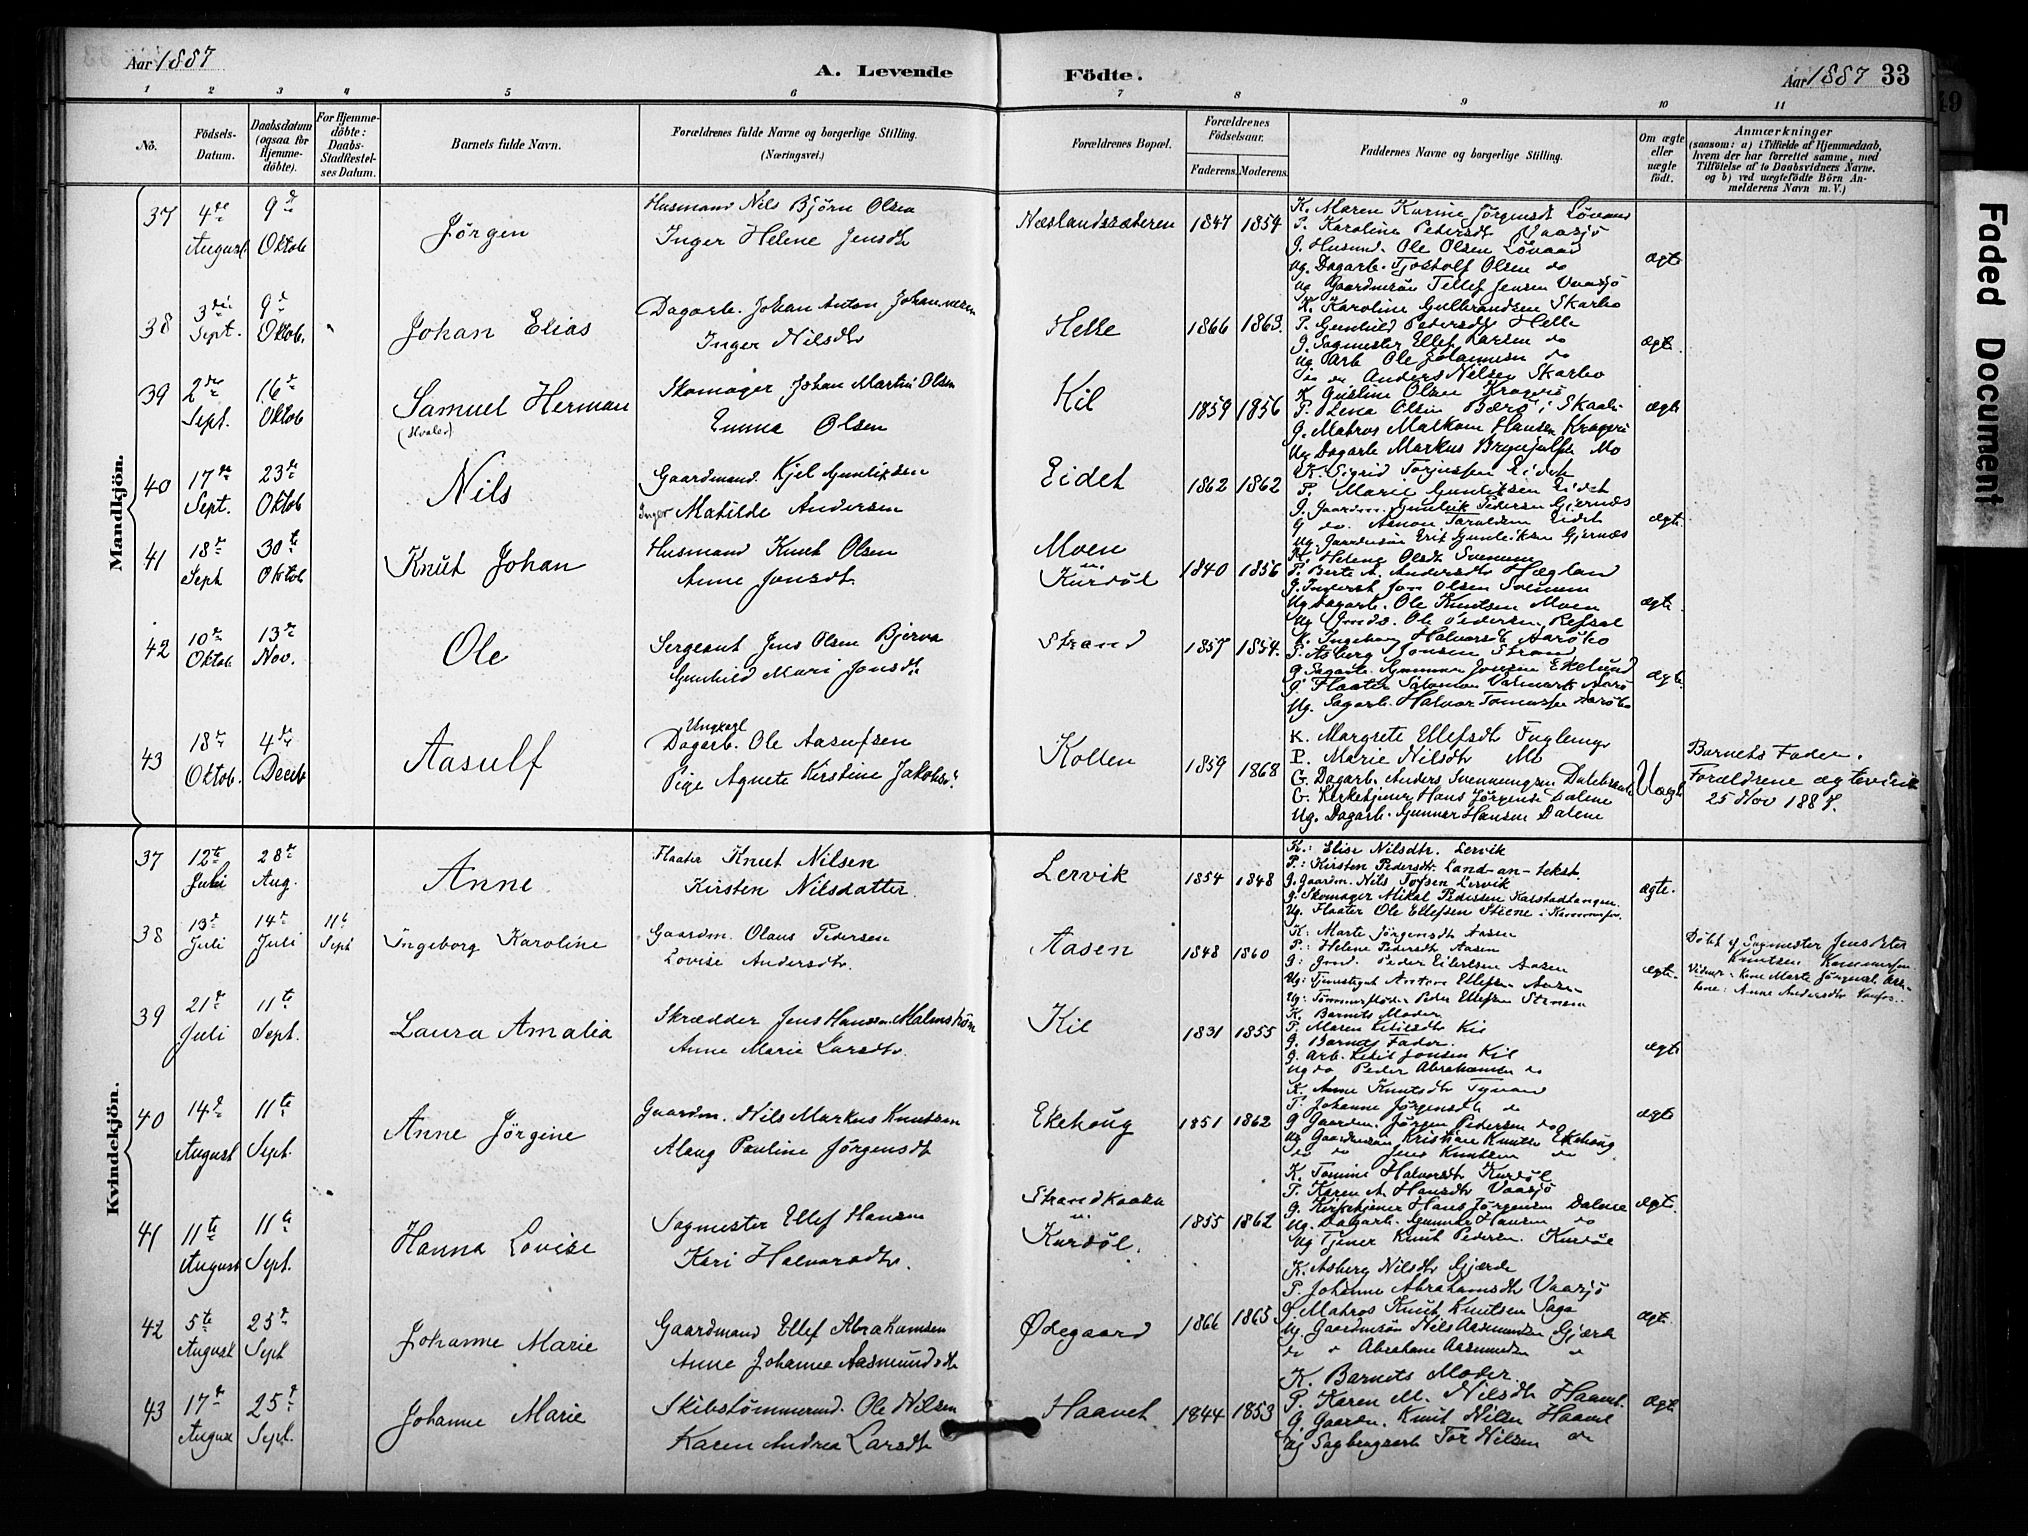 Aar 1887
A. Levende
Födte.
Aar 1887 33
1 2 3 4 5 6 7 8 9 10 11
No.
Födsels-Datum.
Daabsdatum (ogsaa for Hjemme-döbte).
For Hjemme-döbte: Daabs-Stadfæstel-ses Datum.
Barnets fulde Navn.
Forældrenes fulde Navne og borgerlige Stilling. (Næringsvei.)
Forældrenes Bopæl.
Forældrenes Födselsaar.
Faderens. Moderens.
Faddernes Navne og borgerlige Stilling.
Om ægte eller uægte födt.
Anmærkninger (saasom: a) i Tilfælde af Hjemmedaab, hvem der har forrettet samme, med Tilföielse af to Daabsvidners Navne. og b) ved uægtefödte Börn An-melderens Navn m. V.)
Mandkjön.
37 4de August 9de Oktob Jørgen
Husmand Nils Bjørn Olsen
Inger Helene Jensdt
Næslandssæteren 1847 1854
K. Maren Karine Jørgensdt
P. Karoline Pedersdt Vaasjø
G. Husmd. Ole Olsen
Ug. Dagarb. Tjostolf Olsen do
Ug Gaardmsøn Tellef Jensen Vaasjø
ægte
38 3die Sept. 9de Oktob. Johan Elias
Dagarb. Johan Anton Johannesen
Inger Nilsdtr
Helle 1866 1863.
K. Karoline Gulbrandsen Skarbo
P. Gunhild Pedersdt Helle
G. Sagmester Ellef Larsen do
Ug Arb Ole Johannesen do
do Anders Nilsen Skarbo
ægte
39 2den Sept. 16de Oktob Samuel Herman
(Hvaler)
Skomager Johan Martin Olsen
Emma Olsen
Kil 1859 1856
K. Gustine Olsen Kragerø
P. Lina Olsen
G. Matros Markom Hansen Kragerø
Ug Dagarb Markus Brynjulfs. Mo
ægte
40 17de Sept. 23de Oktob Nils
Gaardmand. Kjel Gunliksen
Inger Matilde Andersen
Eidet 1862 1862
K. Sigrid Torjussen Eidet
P. Marie Gunliksen Eidet
G. Gaardm. Gunleik Pedersen Gjernæs
G do. Asmon Taraldsen Eidet
Ug. Gaardmsøn Erik Gunleiksen Gjernæs
ægte
41 18de Sept 30te Oktob Knut Johan
Husmand Knut Olsen
Anne Jonsdt.
Moen u. Kurdøl 1840 1856
K. Helene Olsdt Svenum
P. Berte A. Andersdtr Hægland
G. Inderst Jon Olsen Svenum
Ug Dagarb. Ole Knutsen Moen
Ug Ole Pedersen Refsal
ægte.
42 10de Oktob. 13de Nov. Ole
Sergeant Jens Olsen Bjerva
Gunhild Mari Jonsdt.
Strand 1857 1854.
K. Ingeborg Halvorsdt Aarø
P. Asberg Jonsen Strand
G Sagarb. Gunnar Jonsen Ekelund
G. Flaater Salomon Valmark Aarø
Ug. Sagarb. Halvor Tomassen Aarø
ægte.
43 18de Oktob. 4de Decbr Aasulf
Ungkarl
Dagarb. Ole Aasulfsen
Pige Agnete Kirstine Jakobs.
Kollen 1859 1868
K. Margrete Ellefsdt Fuglemyr
P. Marie Nilsdtr Mo
G. Dagarb. Anders Svennungsen
G. Kirketjener Hans Jørgensen Dalene
Ug. Dagarb. Gunnar Hansen Dalene
Uægte
Barnets Fader.
Forældrene ægteviede
25 Nov 1887.
Kvindekjön.
37 12te Juli 28de Aug. Anne
Flaater Knut Nilsen
Kirsten Nilsdatter.
Lervik 1854 1848
K.: Elise Nilsdtr. Lervik
P.: Kirsten Pedersdt.
G. Gaardm. Nils Lervik
G. Skomager Mikal Pedersen
Ug. Flaater Ole Ellefsen
ægte.
38 13de Juli 14de Juli 11te Sept Ingeborg Karoline
Gaardm. Olaus Pedersen
Lovise Andersdtr.
Aasen 1848 1860
K: Marte Jørgensdt Aasen
P.: Helene Pedersdt Aasen
G: Peder Eilertsen Aasen
Ug: Ellefsen Aasen
Ug: Tømmermand Peder Ellefsen
ægte.
Døbt af Sagmester Jens Peter Knutsen
Vidner: Kone Marte Jørgensdt.
Anne Andersdtr
39 21de Juli 11te Sept. Laura Amalia
Skrædder Jens Hansen Malmstrøm
Anne Marie Larsdtr.
Kil 1831 1855
K. Barnets Moder
P. Maren Ketilsdtr Kil
G. Barnets Fader.
G. Arb. Ketil Jonsen Kil
Ug do Peder Abrahamsen do
ægte
40 14de August 11te Sept. Anne Jørgine
Gaardm. Nils Markus Knutsen
Alaug Pauline Jørgensdt
Ekehoug 1851 1862
K. Anne Knutsdtr
P. Johanne Jørgensdt do
G Gaardm. Jørgen Pedersen do
Ug Gaardmsøn Kristian Knutsen Ekehoug
do do Jens Knutsen do
ægte
41 11te August 11te Sept. Hanna Lovise
Sagmester Ellef Hansen
Kari Halvorsdtr.
Strandkaasa u. Kurdøl. 1855 1862
K. Tomine Halvorsdtr Kurdøl
P. Karen A. Hansdtr Vaasjø
G. Kirketjener Hans Jørgensen Dalene
Ug. Dagarb. Gunnar Hansen do
Ug Tjener Knut Pedersen. Kurdøl
ægte.
42 5te August 25de Sept Johanne Marie
Gaardmand Ellef Abrahamsen
Anne Johanne Aasmundsdt
Ødegaard 1866 1865
K. Asberg Nilsdtr Gjærde
P. Johanne Abrahamsdtr Vaasjø
G. Matros Knut Knutsen Saga
Ug. Gaardmsøn Nils Aasmundsen Gjærde
do Abraham Aasmundsen
ægte.
43 17de August 25de Sept. Johanne Marie
Skibstømmermd. Ole Nilsen
Karen Andrea Larsdt
Haavet. 1844 1853
K. Barnets Moder.
P. Karen M. Nilsdt Haavet.
G. Gaardm. Knut Nilsen Haavet
Ug Sagbrugsarb Tor Nilsen do
ægte.
Faded Document